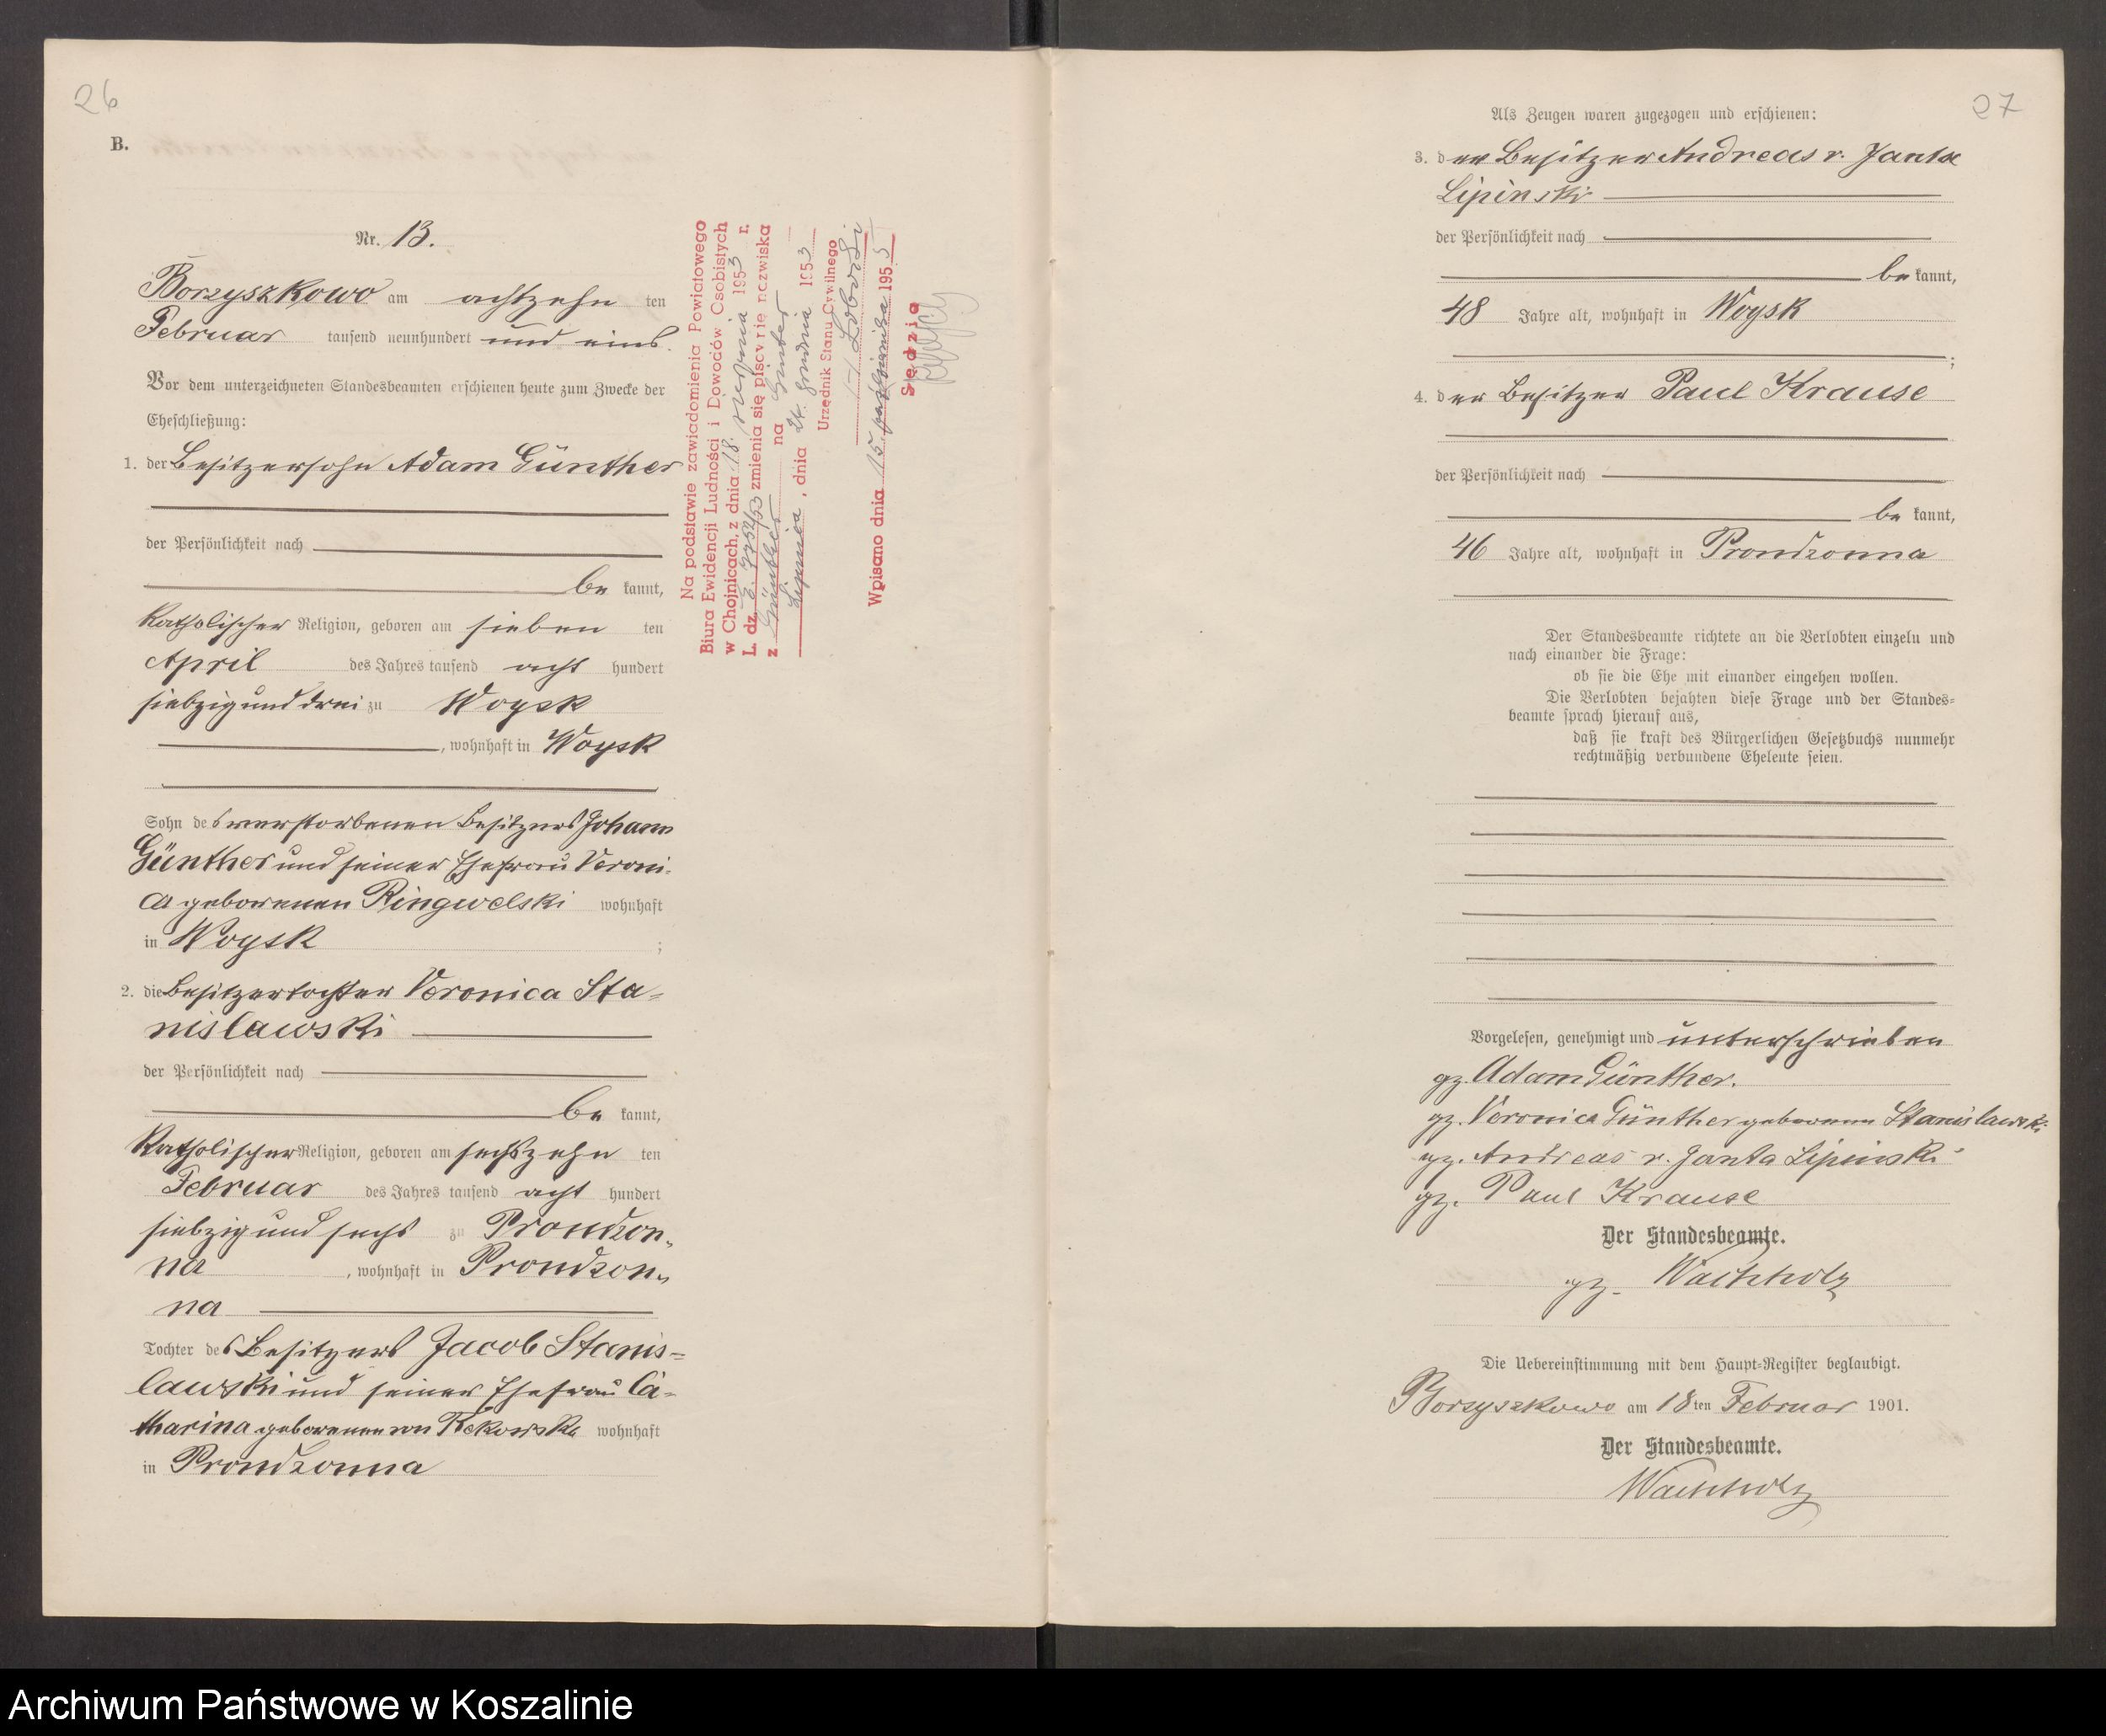 26
B.
Nr. 13.
Borzyszkowo am achtzehn ten
Februar tausend neunhundert und eins.
Vor dem unterzeichneten Standesbeamten erschienen heute zum Zwecke der
Eheschließung:
1. der Besitzersohn Adam Günther
der Persönlichkeit nach
be kannt,
katholischer Religion, geboren am sieben ten
April des Jahres tausend acht hundert
siebzig und drei zu Woysk
, wohnhaft in Woysk
Sohn des verstorbenen Besitzers Johann
Günther und seiner Ehefrau Veroni-
ca geborenen Ringwelski wohnhaft
in Woysk ;
2. die Besitzertochter Veronica Sta-
nislawski
der Persönlichkeit nach
be kannt,
katholischer Religion, geboren am sechszehn ten
Februar des Jahres tausend acht hundert
siebzig und sechs zu Prondzon-
na , wohnhaft in Prondzon-
na
Tochter des Besitzers Jacob Stanis-
lawski und seiner Ehefrau Ca-
tharina geborenen von Kekowski wohnhaft
in Prondzonna
Na podstawie zawiadomienia Powiatowego
Biura Ewidencji Ludności i Dowodów Osobistych
w Chojnicach, z dnia 18. sierpnia 1953 r.
L. dz. zmienia się pisownię nazwiska
z Günther na Ginter
Lipnica, dnia 24. grudnia 1953
Urzędnik Stanu Cywilnego
Wpisano dnia 15. października 1955
Sędzia
27
Als Zeugen waren zugezogen und erschienen:
3. der Besitzer Andreas v. Janta
Lipinski
der Persönlichkeit nach
be kannt,
48 Jahre alt, wohnhaft in Woysk
;
4. der Besitzer Paul Krause
der Persönlichkeit nach
be kannt,
46 Jahre alt, wohnhaft in Prondzonna
Der Standesbeamte richtete an die Verlobten einzeln und
nach einander die Frage:
ob sie die Ehe mit einander eingehen wollen.
Die Verlobten bejahten diese Frage und der Standes-
beamte sprach hierauf aus,
daß sie kraft des Bürgerlichen Gesetzbuchs nunmehr
rechtmäßig verbundene Eheleute seien.
Vorgelesen, genehmigt und unterschrieben
gz. Adam Günther.
gz. Veronica Günther geborene Stanislawski
gz. Andreas v. Janta Lipinski
gz. Paul Krause
Der Standesbeamte.
gz. Wachholz
Die Uebereinstimmung mit dem Haupt-Register beglaubigt.
Borzyszkowo am 18 ten Februar 1901.
Der Standesbeamte.
Wachholz
Archiwum Państwowe w Koszalinie